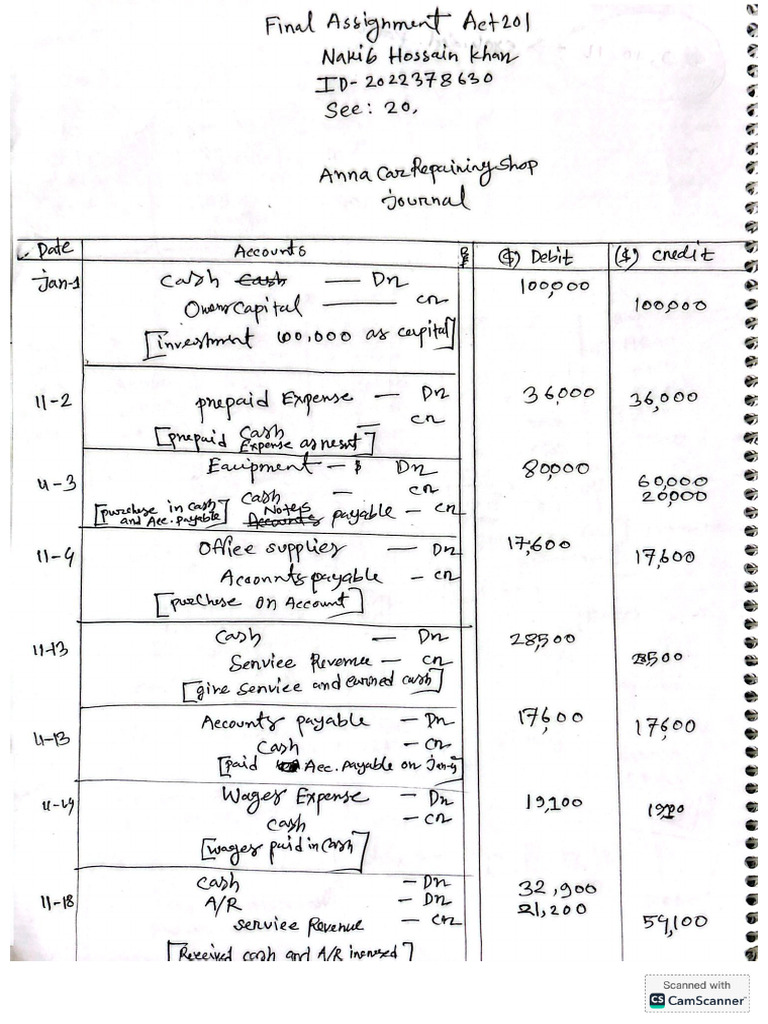 Final Assignment Act201
Nakib Hossain Khan
ID-2022378630
Sec: 20,
Anna Car Repairing Shop
Journal
Date Accounts ($) Debit ($) Credit
Jan-1 Cash Cash — Dr 100,000
Owners Capital — Cr 100,000
[investment 100,000 as capital]
11-2 prepaid Expense — Dr 36,000 36,000
Cash — Cr
[prepaid Expense as rent]
11-3 Equipment — $ Dr 80,000
Cash — Cr 60,000
[purchase in cash and Acc. payable] Notes Accounts payable — Cr 20,000
11-4 Office supplies — Dr 17,600
Accounts payable — Cr 17,600
[purchase on Account]
11-13 Cash — Dr 28,500
Service Revenue — Cr 28500
[give service and earned cash]
11-13 Accounts payable — Dr 17,600 17,600
Cash — Cr
[paid Acc. Payable on Jan-4]
Wages Expense — Dr 19,100
Cash — Cr
[wages paid in cash]
11-18 Cash — Dr 32,900
A/R — Dr 21,200
Service Revenue — Cr 54,100
[Received cash and A/R increased]
Scanned with
CS CamScanner